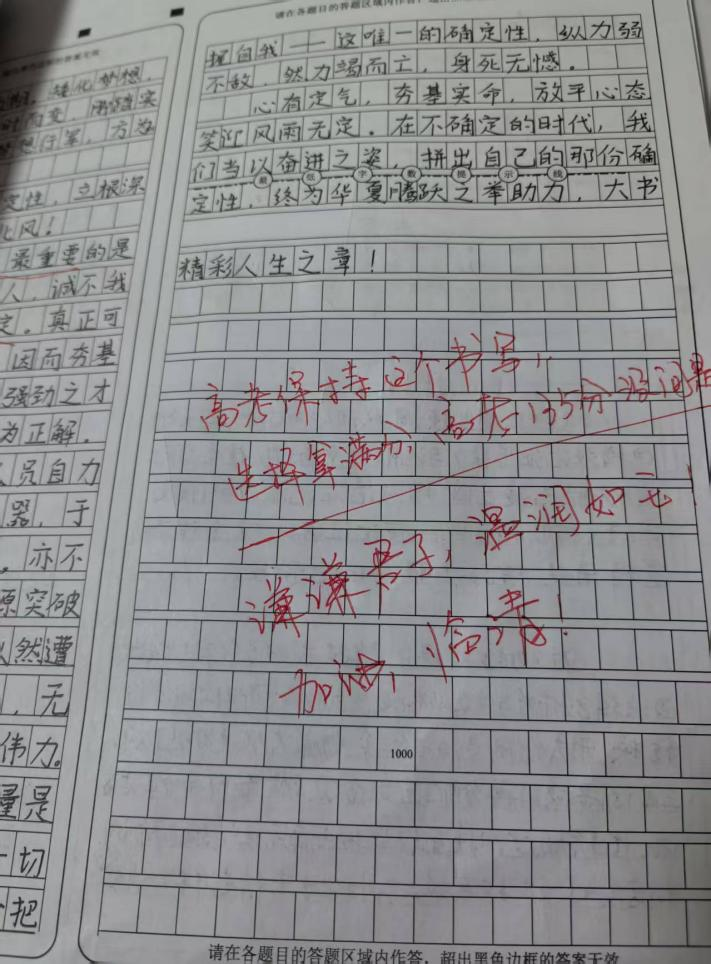 请在各题目的答题区域内作答
握自我——这唯一的确定性，纵力弱
不敌，然力竭而亡，身死无憾。
心有定气，夯基实命，放平心态
笑迎风雨无定。在不确定的时代，我
们当以奋进之姿，拼出自己的那份确
最低字数提示线
定性，终为华夏腾跃之举助力，大书
精彩人生之章！
高考保持这个书写，
选择拿满分，高考135分没问题
谦谦君子，温润如玉！
加油，临清！
1000
请在各题目的答题区域内作答，超出黑色边框的答案无效
矮化梦想，
时而变，
方为
定性，立根深
北风！
最重要的是
人，诚不我
定。真正可
因而夯基
强劲之才
为正解。
员自力
器，于
。亦不
源突破
然遭
，无
伟力。
量是
一切
把